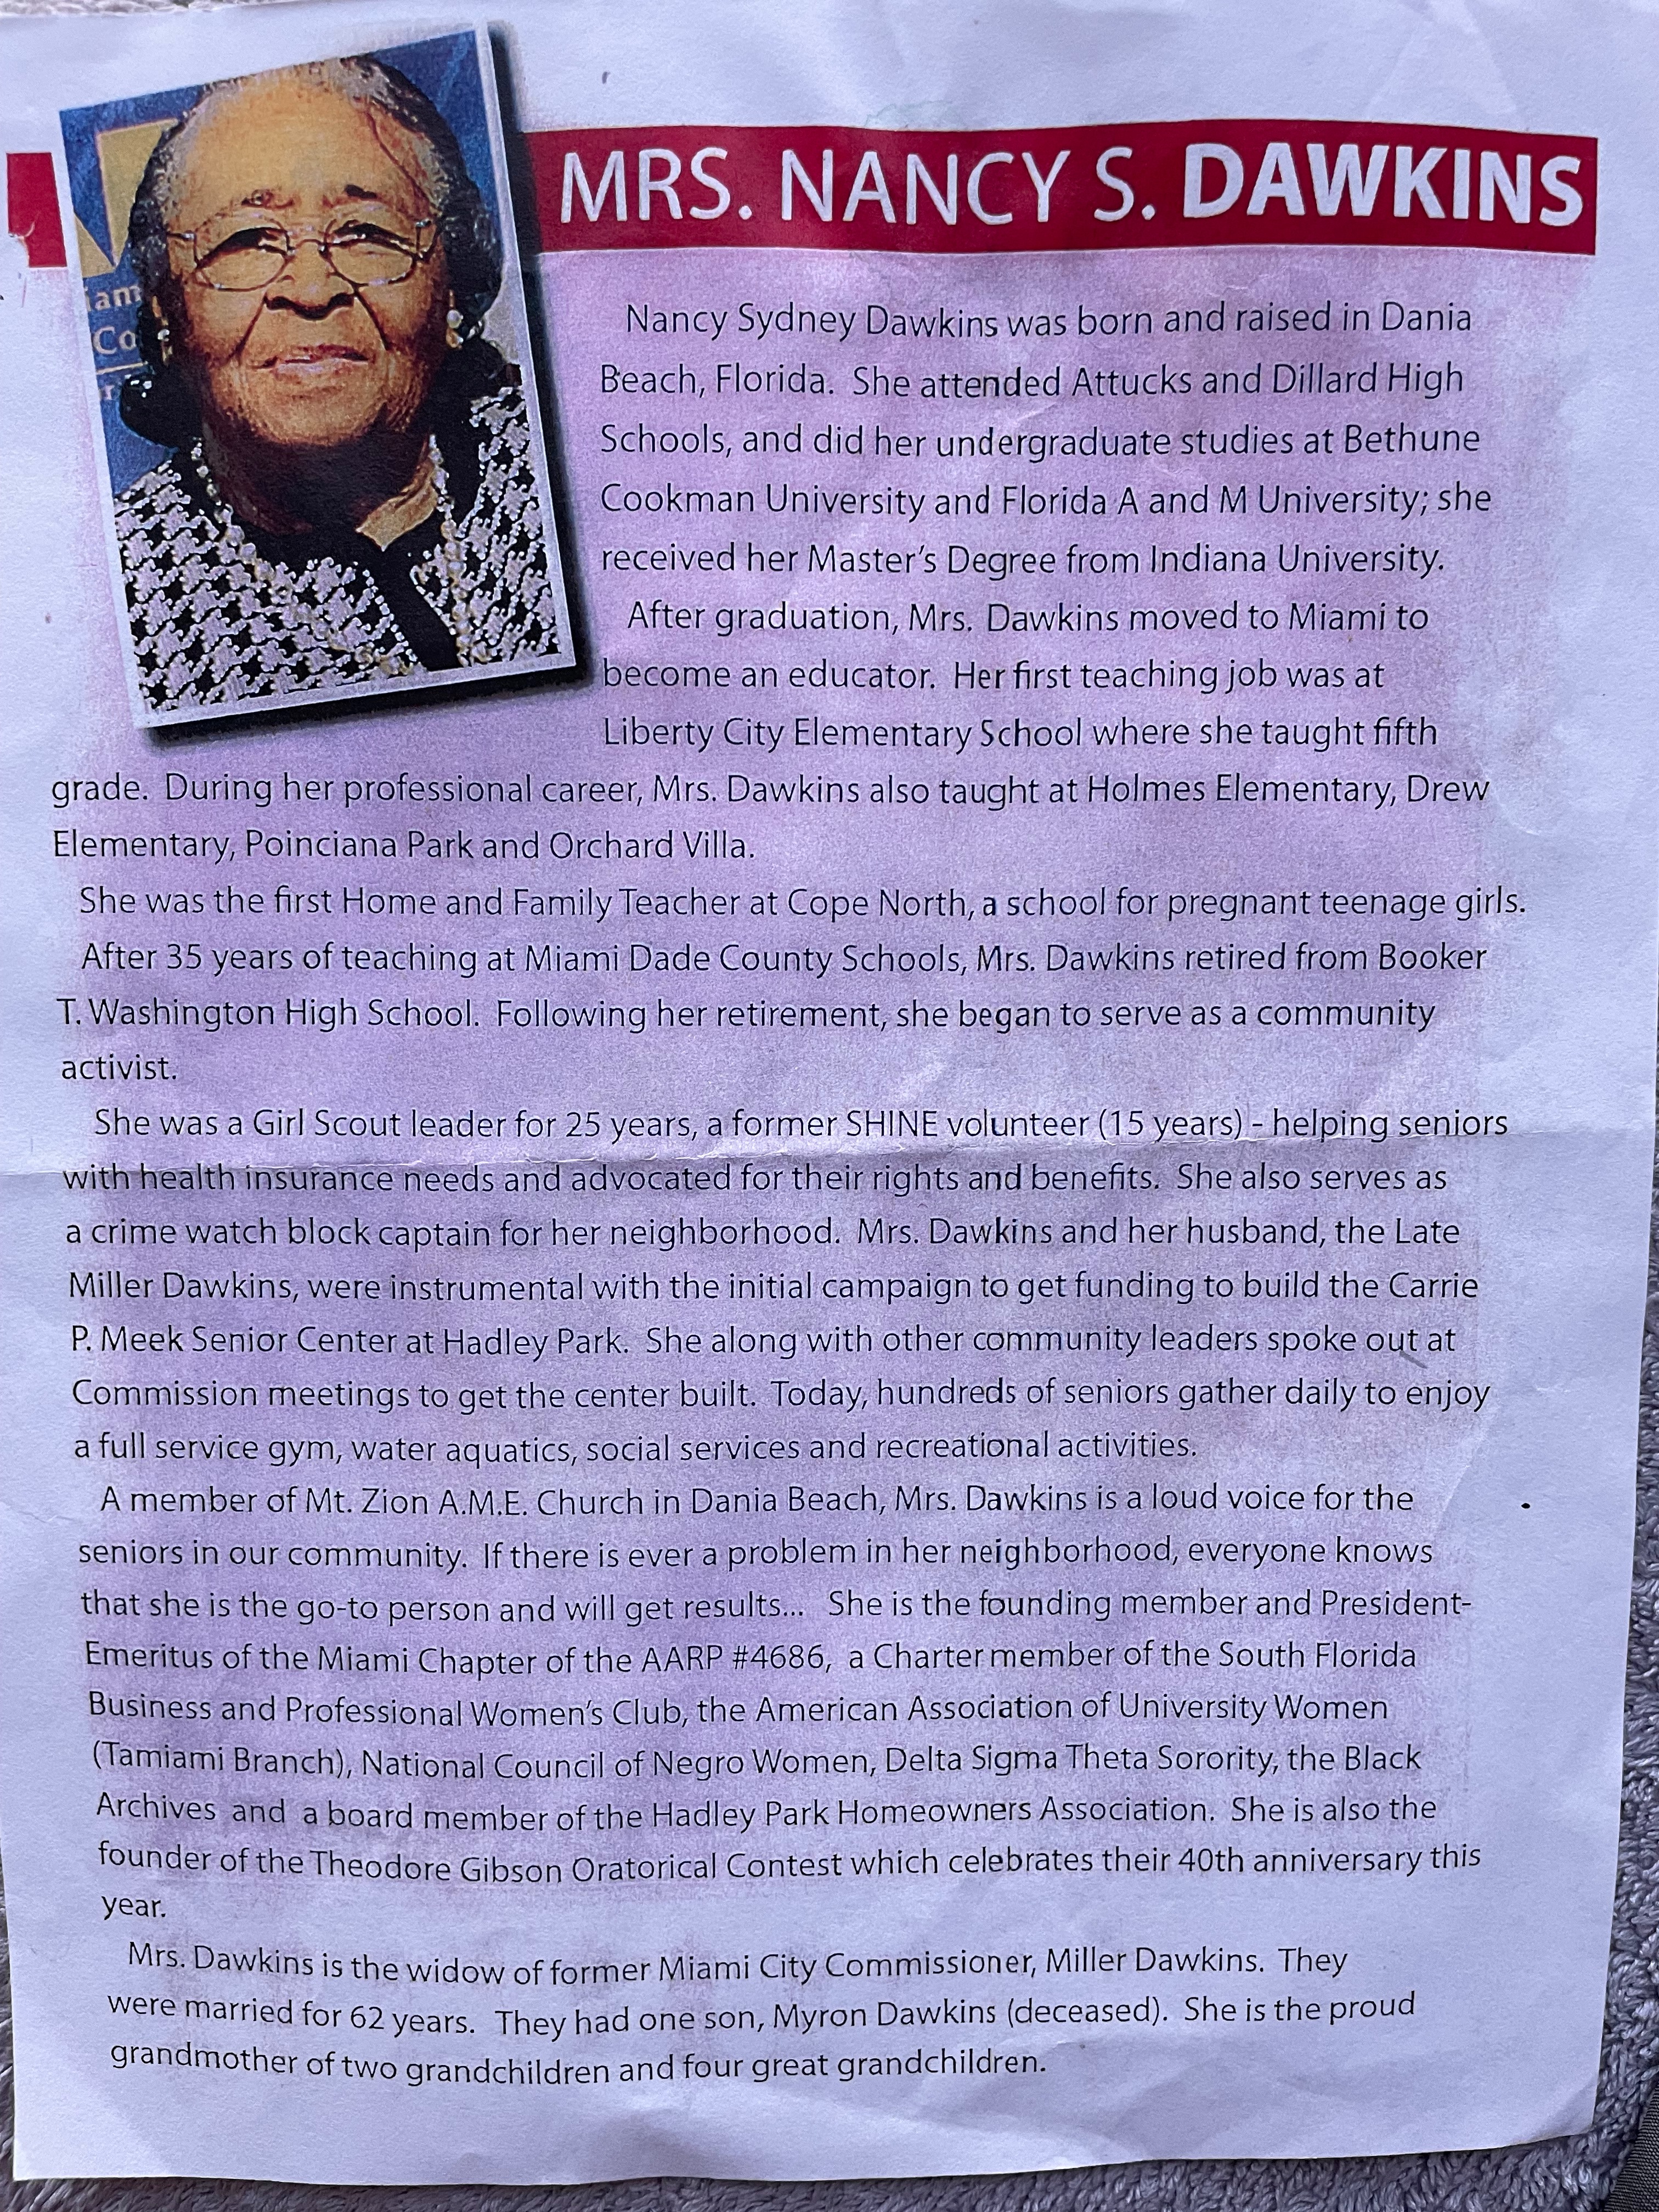 MRS. NANCY S. DAWKINS
iam
Co
Nancy Sydney Dawkins was born and raised in Dania
Beach, Florida. She attended Attucks and Dillard High
Schools, and did her undergraduate studies at Bethune
Cookman University and Florida A and M University; she
received her Master's Degree from Indiana University.
After graduation, Mrs. Dawkins moved to Miami to
become an educator. Her first teaching job was at
Liberty City Elementary School where she taught fifth
grade. During her professional career, Mrs. Dawkins also taught at Holmes Elementary, Drew
Elementary, Poinciana Park and Orchard Villa.
She was the first Home and Family Teacher at Cope North, a school for pregnant teenage girls.
After 35 years of teaching at Miami Dade County Schools, Mrs. Dawkins retired from Booker
T. Washington High School. Following her retirement, she began to serve as a community
activist.
She was a Girl Scout leader for 25 years, a former SHINE volunteer (15 years) - helping seniors
with health insurance needs and advocated for their rights and benefits. She also serves as
a crime watch block captain for her neighborhood. Mrs. Dawkins and her husband, the Late
Miller Dawkins, were instrumental with the initial campaign to get funding to build the Carrie
P. Meek Senior Center at Hadley Park. She along with other community leaders spoke out at
Commission meetings to get the center built. Today, hundreds of seniors gather daily to enjoy
a full service gym, water aquatics, social services and recreational activities.
A member of Mt. Zion A.M.E. Church in Dania Beach, Mrs. Dawkins is a loud voice for the
seniors in our community. If there is ever a problem in her neighborhood, everyone knows
that she is the go-to person and will get results... She is the founding member and President-
Emeritus of the Miami Chapter of the AARP #4686, a Charter member of the South Florida
Business and Professional Women's Club, the American Association of University Women
(Tamiami Branch), National Council of Negro Women, Delta Sigma Theta Sorority, the Black
Archives and a board member of the Hadley Park Homeowners Association. She is also the
founder of the Theodore Gibson Oratorical Contest which celebrates their 40th anniversary this
year.
Mrs. Dawkins is the widow of former Miami City Commissioner, Miller Dawkins. They
were married for 62 years. They had one son, Myron Dawkins (deceased). She is the proud
grandmother of two grandchildren and four great grandchildren.